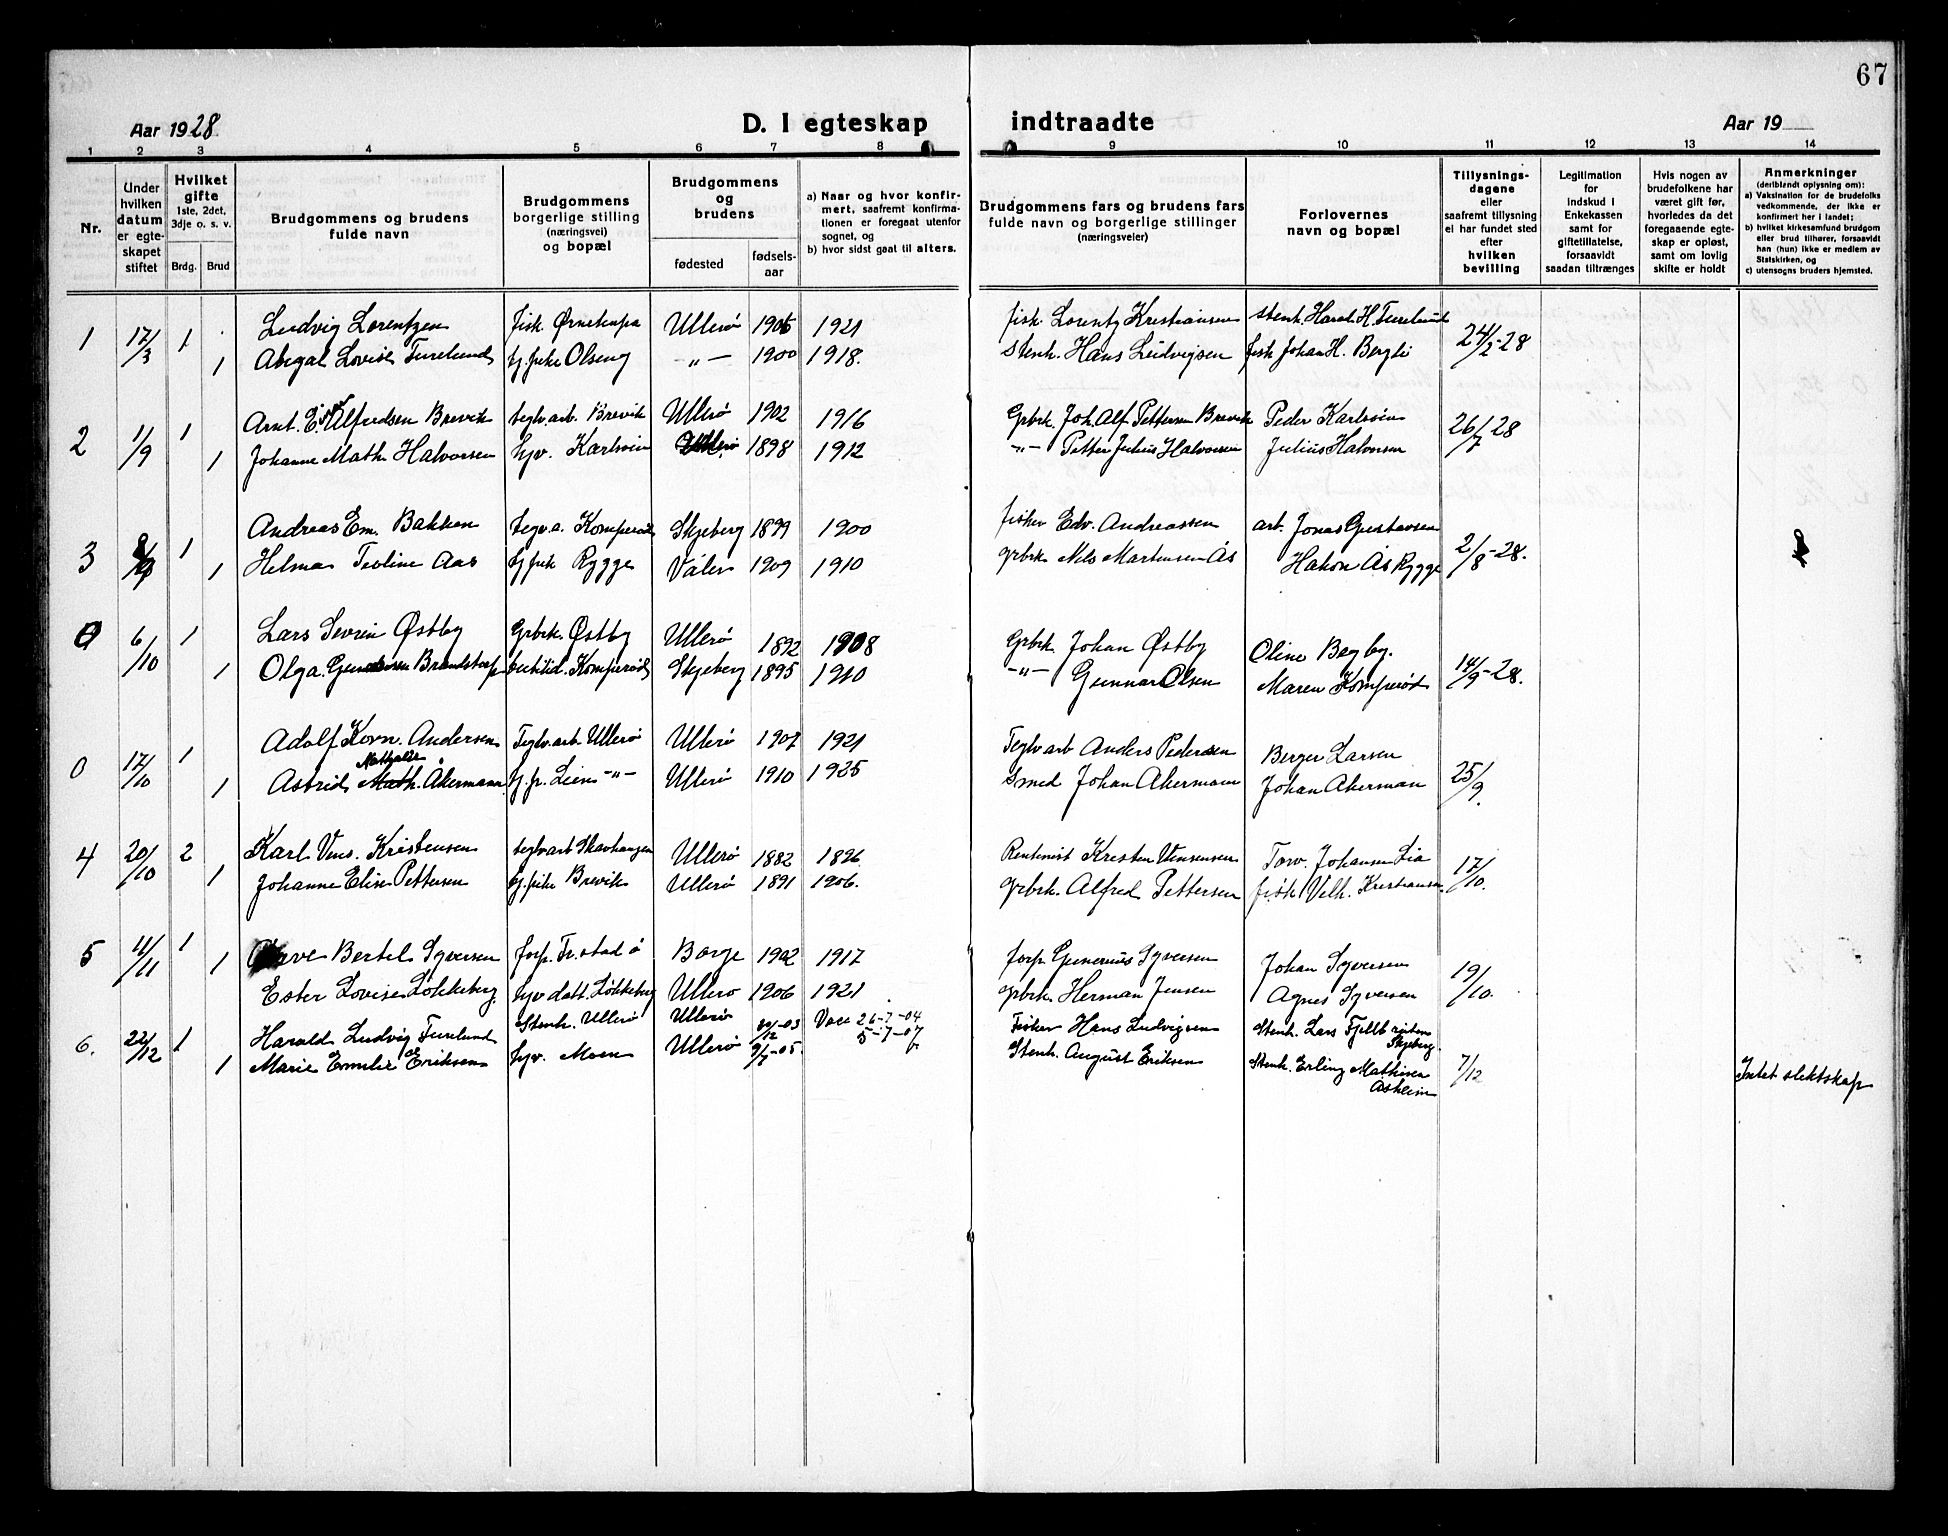 67
Aar 1928.
D. I egteskap indtraadte
Aar 19
1 2 3 4 5 6 7 8 9 10 11 12 13 14
Nr.
Under hvilken datum er egteskapet stiftet
Hvilket gifte
1ste, 2det, 3dje o. s. v.
Brdg. Brud
Brudgommens og brudens fulde navn
Brudgommens og brudens borgerlige stilling (næringsvei) og bopæl
Brudgommens og brudens
fødested
fødsels-aar
a) Naar og hvor konfirmert, saafremt konfirmationen er foregaat utenfor sognet, og
b) hvor sidst gaat til alters.
Brudgommens fars og brudens fars fulde navn og borgerlige stillinger (næringsveier)
Forlovernes navn og bopæl
Tillysningsdagene eller saafremt tillysning ei har fundet sted efter hvilken bevilling
Legitimation for indskud i Enkekassen samt for giftetillatelse, forsaavidt saadan tiltrænges
Hvis nogen av brudefolkene har været gift før, hvorledes da det foregaaende egteskap er opløst, samt om lovlig skifte er holdt
Anmerkninger
(deriblandt oplysning om):
a) Vaksination for de brudefolks vedkommende, der ikke er konfirmert her i landet;
b) hvilket kirkesamfund brudgom eller brud tilhører, forsaavidt han (hun) ikke er medlem av Statskirken, og
c) utensogns bruders hjemsted.
1 17/3 1 Ludvig Lorentzen fisk. Ørnekupa Ullerø 1905 1921 fisk. Lorentz Kristiansen stenh. Haral H. Furelund 24/2-28
1 Abigal Lovise Furelund tj.pike Olseng -"- 1900 1918. Stenh. Hans Ludvigsen fisk Johan H. Bergli
2 1/9 1 Arnt. Einar Alfredsen Brevik teglv.arb. Brevik Ullerø 1902 1916 Grbrk. Joh. Alf. Pettersen Brevik Peder Karlsvin 26/7 28
1 Johanne Math. Halvorsen hjv. Karlsvin Ullerø 1898 1912 -"- Petter Julius Halvorsen Julius Halvorsen
3 1 Andreas Em. Bakken tegv.a. Komperød Skjeberg 1899 1900 fisker Edv. Andreassen arb. Jonas Gustavsen 2/8-28.
1 Helma Teoline Aas tj.pike Rygge Våler 1909 1910 grbrk Nils Martinsen Ås Hakon Ås Rygge
0 6/10 1 Lars Sevrin Østby Grbrk. Østby Ullerø 1892 1908 Grbrk. Johan Østby Oline Begby. 14/9-28.
1 Olga Brandstorp Komperød Skjeberg 1895 1910 -"- Gunnar Olsen Maren Komperød
0 17/10 1 Adolf Korn. Andersen Teglv.arb. Ullerø Ullerø 1907 1921 Teglv arb Anders Pedersen Berger Larsen 25/9.
1 Astrid Nathalie Åkermann tj.pr. Lien -"- Ullerø 1910 1925 Smed Johan Akermann Johan Akerman
4 20/10 2 Karl Vens. Kristensen teglvarb Skavhaugen Ullerø 1882 1896 Rentenist Kristen Vensensen Torv. Johansen Lia 17/10.
1 Johanne Elise Pettersen tj.pike Brevik Ullerø 1891 1906. grbrk. Alfred Pettersen fisk Vilh. Kristiansen
5 4/11 1 Bertel Syversen forp. Fr.stad Ø Borge 1902 1917 forp. Gunerius Syversen Johan Syversen 19/10.
1 Ester Lovise Løkkeberg. hjv datt. Løkkeberg Ullerø 1906 1921. grbrk. Herman Jensen Agnes Syversen
6. 22/12 1 Harald Ludvig Furulund Stenh. Ullerø Ullerø /12-03 Vacc 26-7-04 Fisker Hans Ludvigsen Stenh. Lars Fjellbråten Skjeberg. 7/12
1 Marie Emelie Eriksen hjv. Moen Ullerø 9/7-05. 5-7-07 Stenh. August Eriksen Stenh. Erling Mathisen Åsheim Intet slektskap